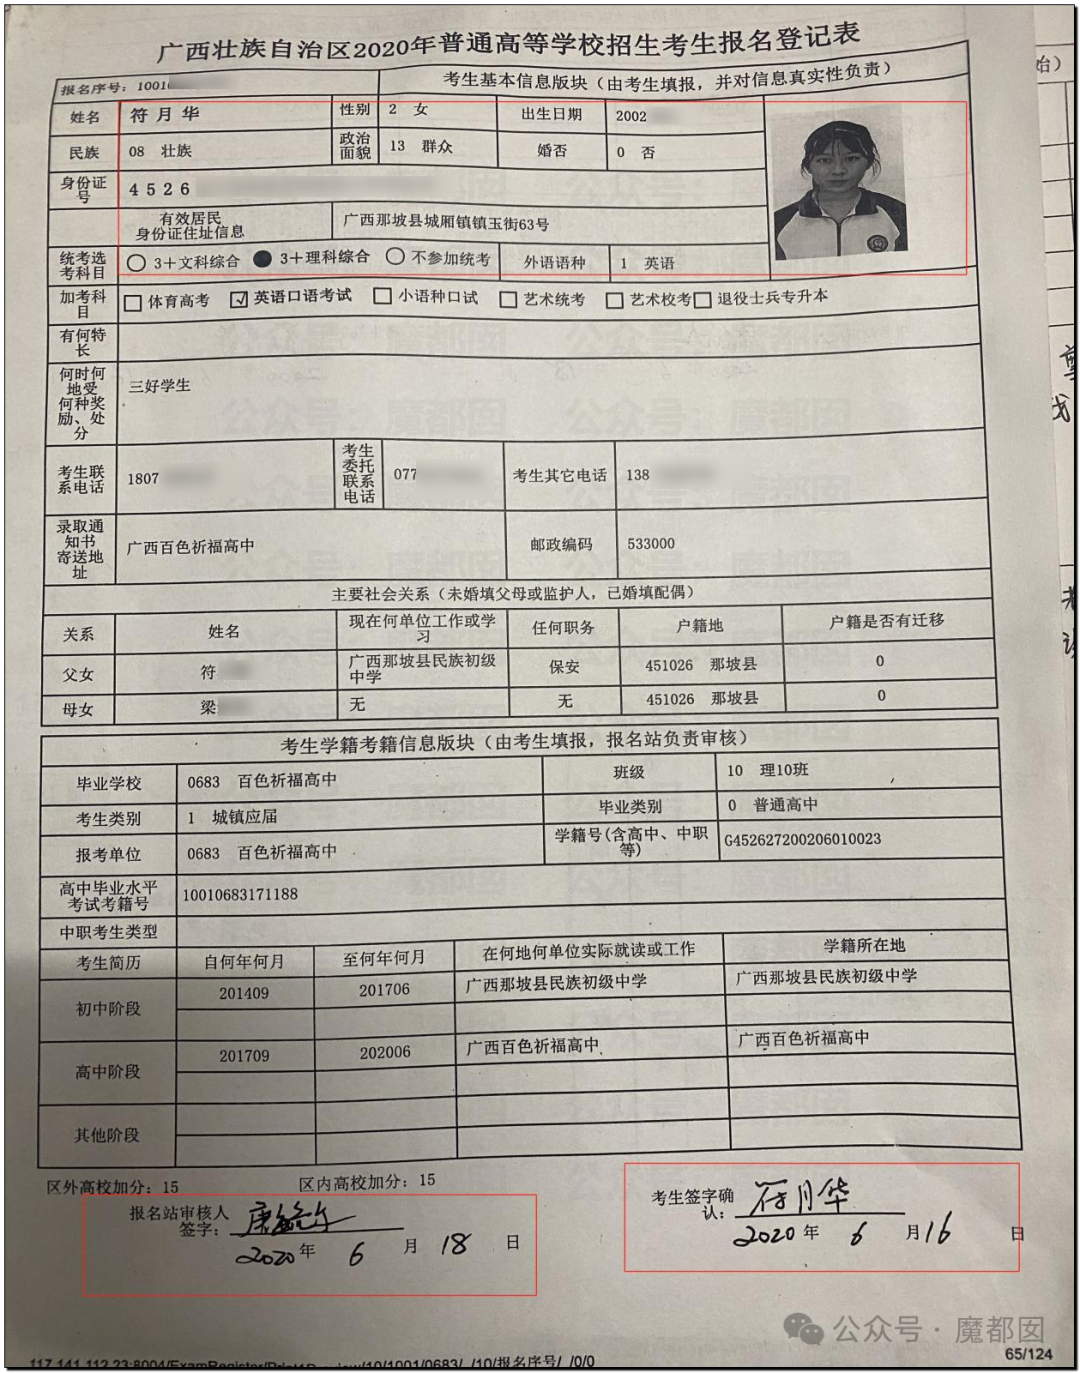 广西壮族自治区2020年普通高等学校招生考生报名登记表
报名序号：1001
考生基本信息版块（由考生填报，并对信息真实性负责）
姓名 符月华 性别 2 女 出生日期 2002
民族 08 壮族 政治面貌 13 群众 婚否 0 否
身份证号 4526
有效居民身份证住址信息 广西那坡县城厢镇镇玉街63号
统考选考科目 3+文科综合 3+理科综合 不参加统考 外语语种 1 英语
加考科目 体育高考 英语口语考试 小语种口试 艺术统考 艺术校考 退役士兵专升本
有何特长
何时何地受何种奖励、处分 三好学生
考生联系电话 1807 考生委托联系电话 077 考生其它电话 138
录取通知书寄送地址 广西百色祈福高中 邮政编码 533000
主要社会关系（未婚填父母或监护人，已婚填配偶）
关系 姓名 现在何单位工作或学习 任何职务 户籍地 户籍是否有迁移
父女 符 广西那坡县民族初级中学 保安 451026 那坡县 0
母女 梁 无 无 451026 那坡县 0
考生学籍考籍信息版块（由考生填报，报名站负责审核）
毕业学校 0683 百色祈福高中 班级 10 理10班
考生类别 1 城镇应届 毕业类别 0 普通高中
报考单位 0683 百色祈福高中 学籍号(含高中、中职等) G452627200206010023
高中毕业水平考试考籍号 10010683171188
中职考生类型
考生简历 自何年何月 至何年何月 在何地何单位实际就读或工作 学籍所在地
初中阶段 201409 201706 广西那坡县民族初级中学 广西那坡县民族初级中学
高中阶段 201709 202006 广西百色祈福高中 广西百色祈福高中
其他阶段
区外高校加分：15 区内高校加分：15
报名站审核人签字：
2020年 6 月 18 日
考生签字确认：符月华
2020年 6 月16 日
公众号·魔都囡
117.141.112.23:8004/ExamRegister/Print1Preview/10/1001/0683/_/10/报名序号/_/0/0
65/124